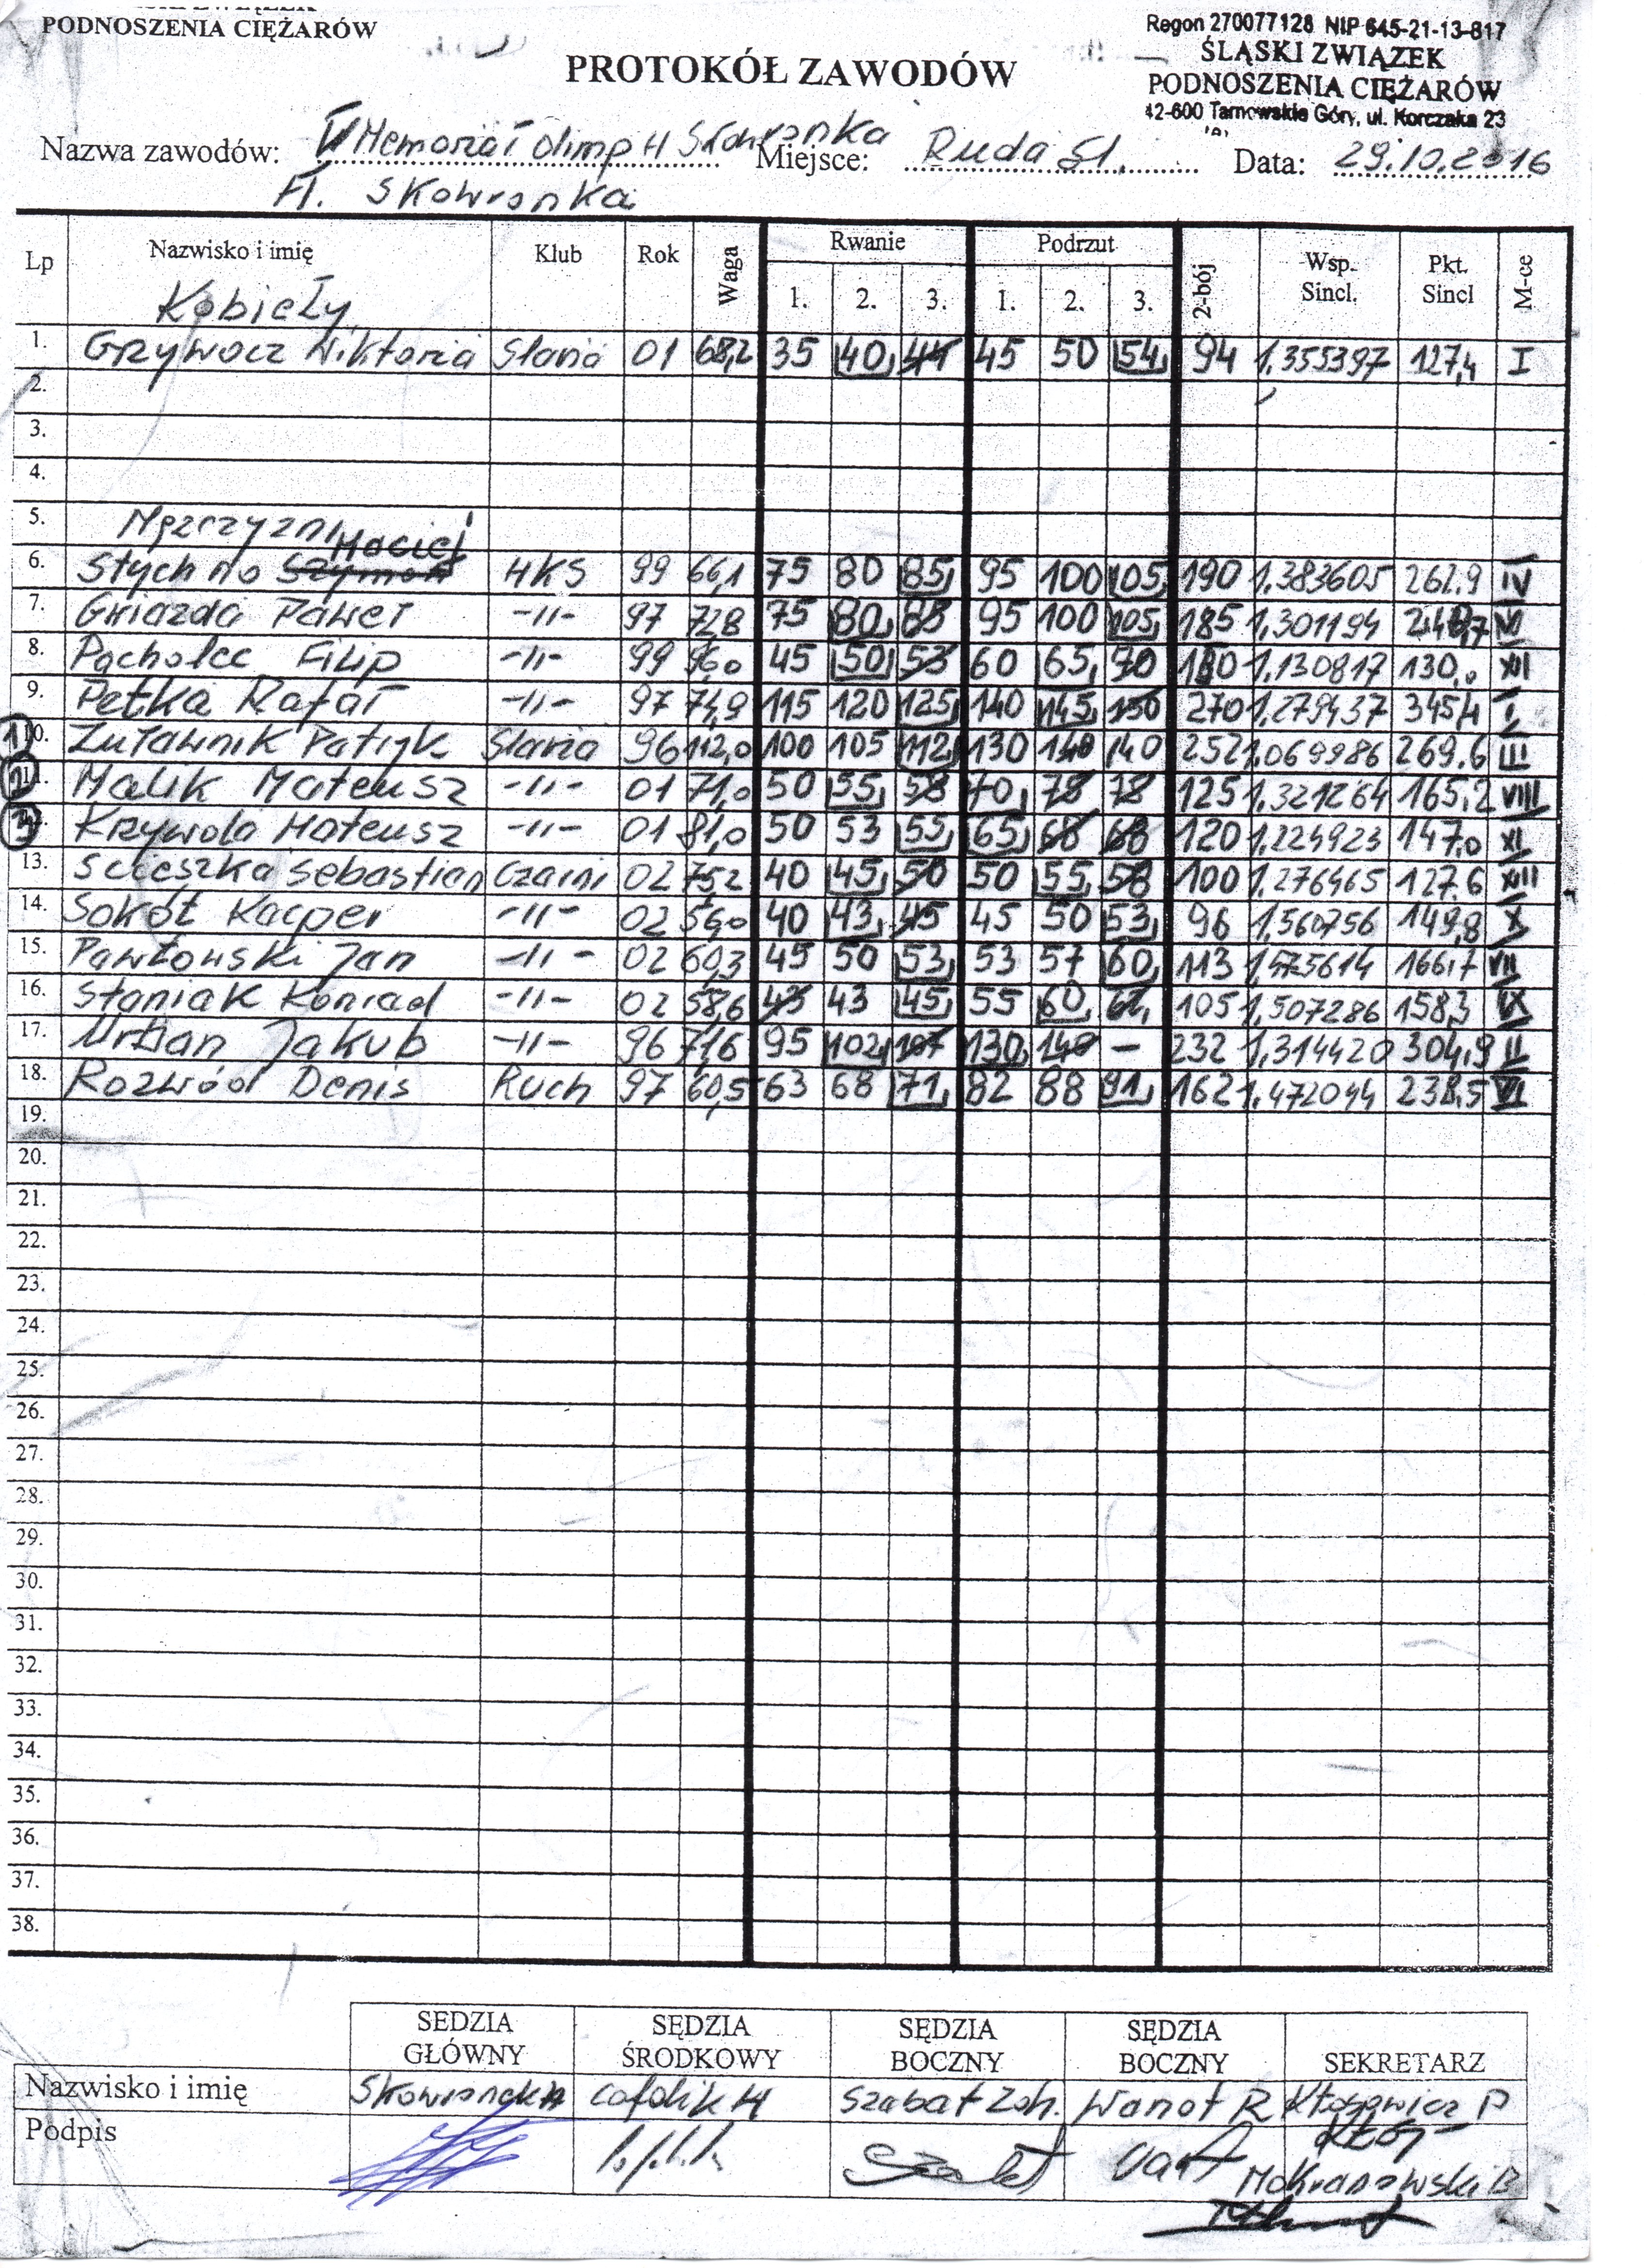 PODNOSZENIA CIĘŻARÓW
Regon 270077128 NIP 645-21-13-817
ŚLĄSKI ZWIĄZEK
PODNOSZENIA CIĘŻARÓW
42-600 Tarnowskie Góry, ul. Korczaka 23
PROTOKÓŁ ZAWODÓW
Nazwa zawodów: Memoriał Olimp H Skowronka Miejsce: Ruda Śl. Data: 29.10.2016
H. Skowronka
Lp Nazwisko i imię Klub Rok Waga Rwanie 1. 2. 3. Podrzut 1. 2. 3. 2-bój Wsp. Sincl. Pkt. Sincl M-ce
Kobiety
1. Grzywocz Wiktoria Slavia 01 68,2 35 40 44 45 50 54 94 1,355397 127,4 I
2.
3.
4.
5. Mężczyzni
6. Stychno Szymon Maciej HKS 99 66,1 75 80 85 95 100 105 190 1,383605 262,9 IV
7. Gwiazda Paweł -11- 97 72,8 75 80 85 95 100 105 185 1,301194 VI
8. Pacholec Filip -11- 99 96,0 45 50 53 60 65 70 1,130817 130,0 XII
9. Petka Rafał -11- 97 74,9 115 120 125 140 145 150 270 1,279437 345,4 I
10. Żuławnik Patryk Slavia 96 112,0 100 105 112 130 140 140 252 1,069986 269,6 III
11. Malik Mateusz -11- 01 71,0 50 55 58 70 78 78 125 1,321264 165,2 VIII
Krzywola Mateusz -11- 01 81,0 50 53 55 65 68 68 120 1,224923 147,0 XI
13. Scieszka Sebastian Czarni 02 75,2 40 45 50 50 55 58 100 1,276465 127,6 XIII
14. Sokół Kacper -11- 02 56,0 40 43 45 45 50 53 96 1,560756 149,8 X
15. Pawłowski Jan -11- 02 60,3 45 50 53 53 57 60 113 1,475614 166,7 VII
16. Staniak Konrad -11- 02 58,6 43 43 45 55 60 105 1,507286 158,3 IX
17. Urban Jakub -11- 96 71,6 95 102 107 130 140 – 232 1,314420 304,9 II
18. Rozwód Denis Ruch 97 60,5 63 68 71 82 88 91 162 1,472044 238,5 VI
19.
20.
21.
22.
23.
24.
25.
26.
27.
28.
29.
30.
31.
32.
33.
34.
35.
36.
37.
38.
SEDZIA GŁÓWNY SĘDZIA ŚRODKOWY SĘDZIA BOCZNY SĘDZIA BOCZNY SEKRETARZ
Nazwisko i imię Skowronek H Cofalik H Szabat Zdz. Wanot R Kłosowicz P
Podpis
Mokranowski B